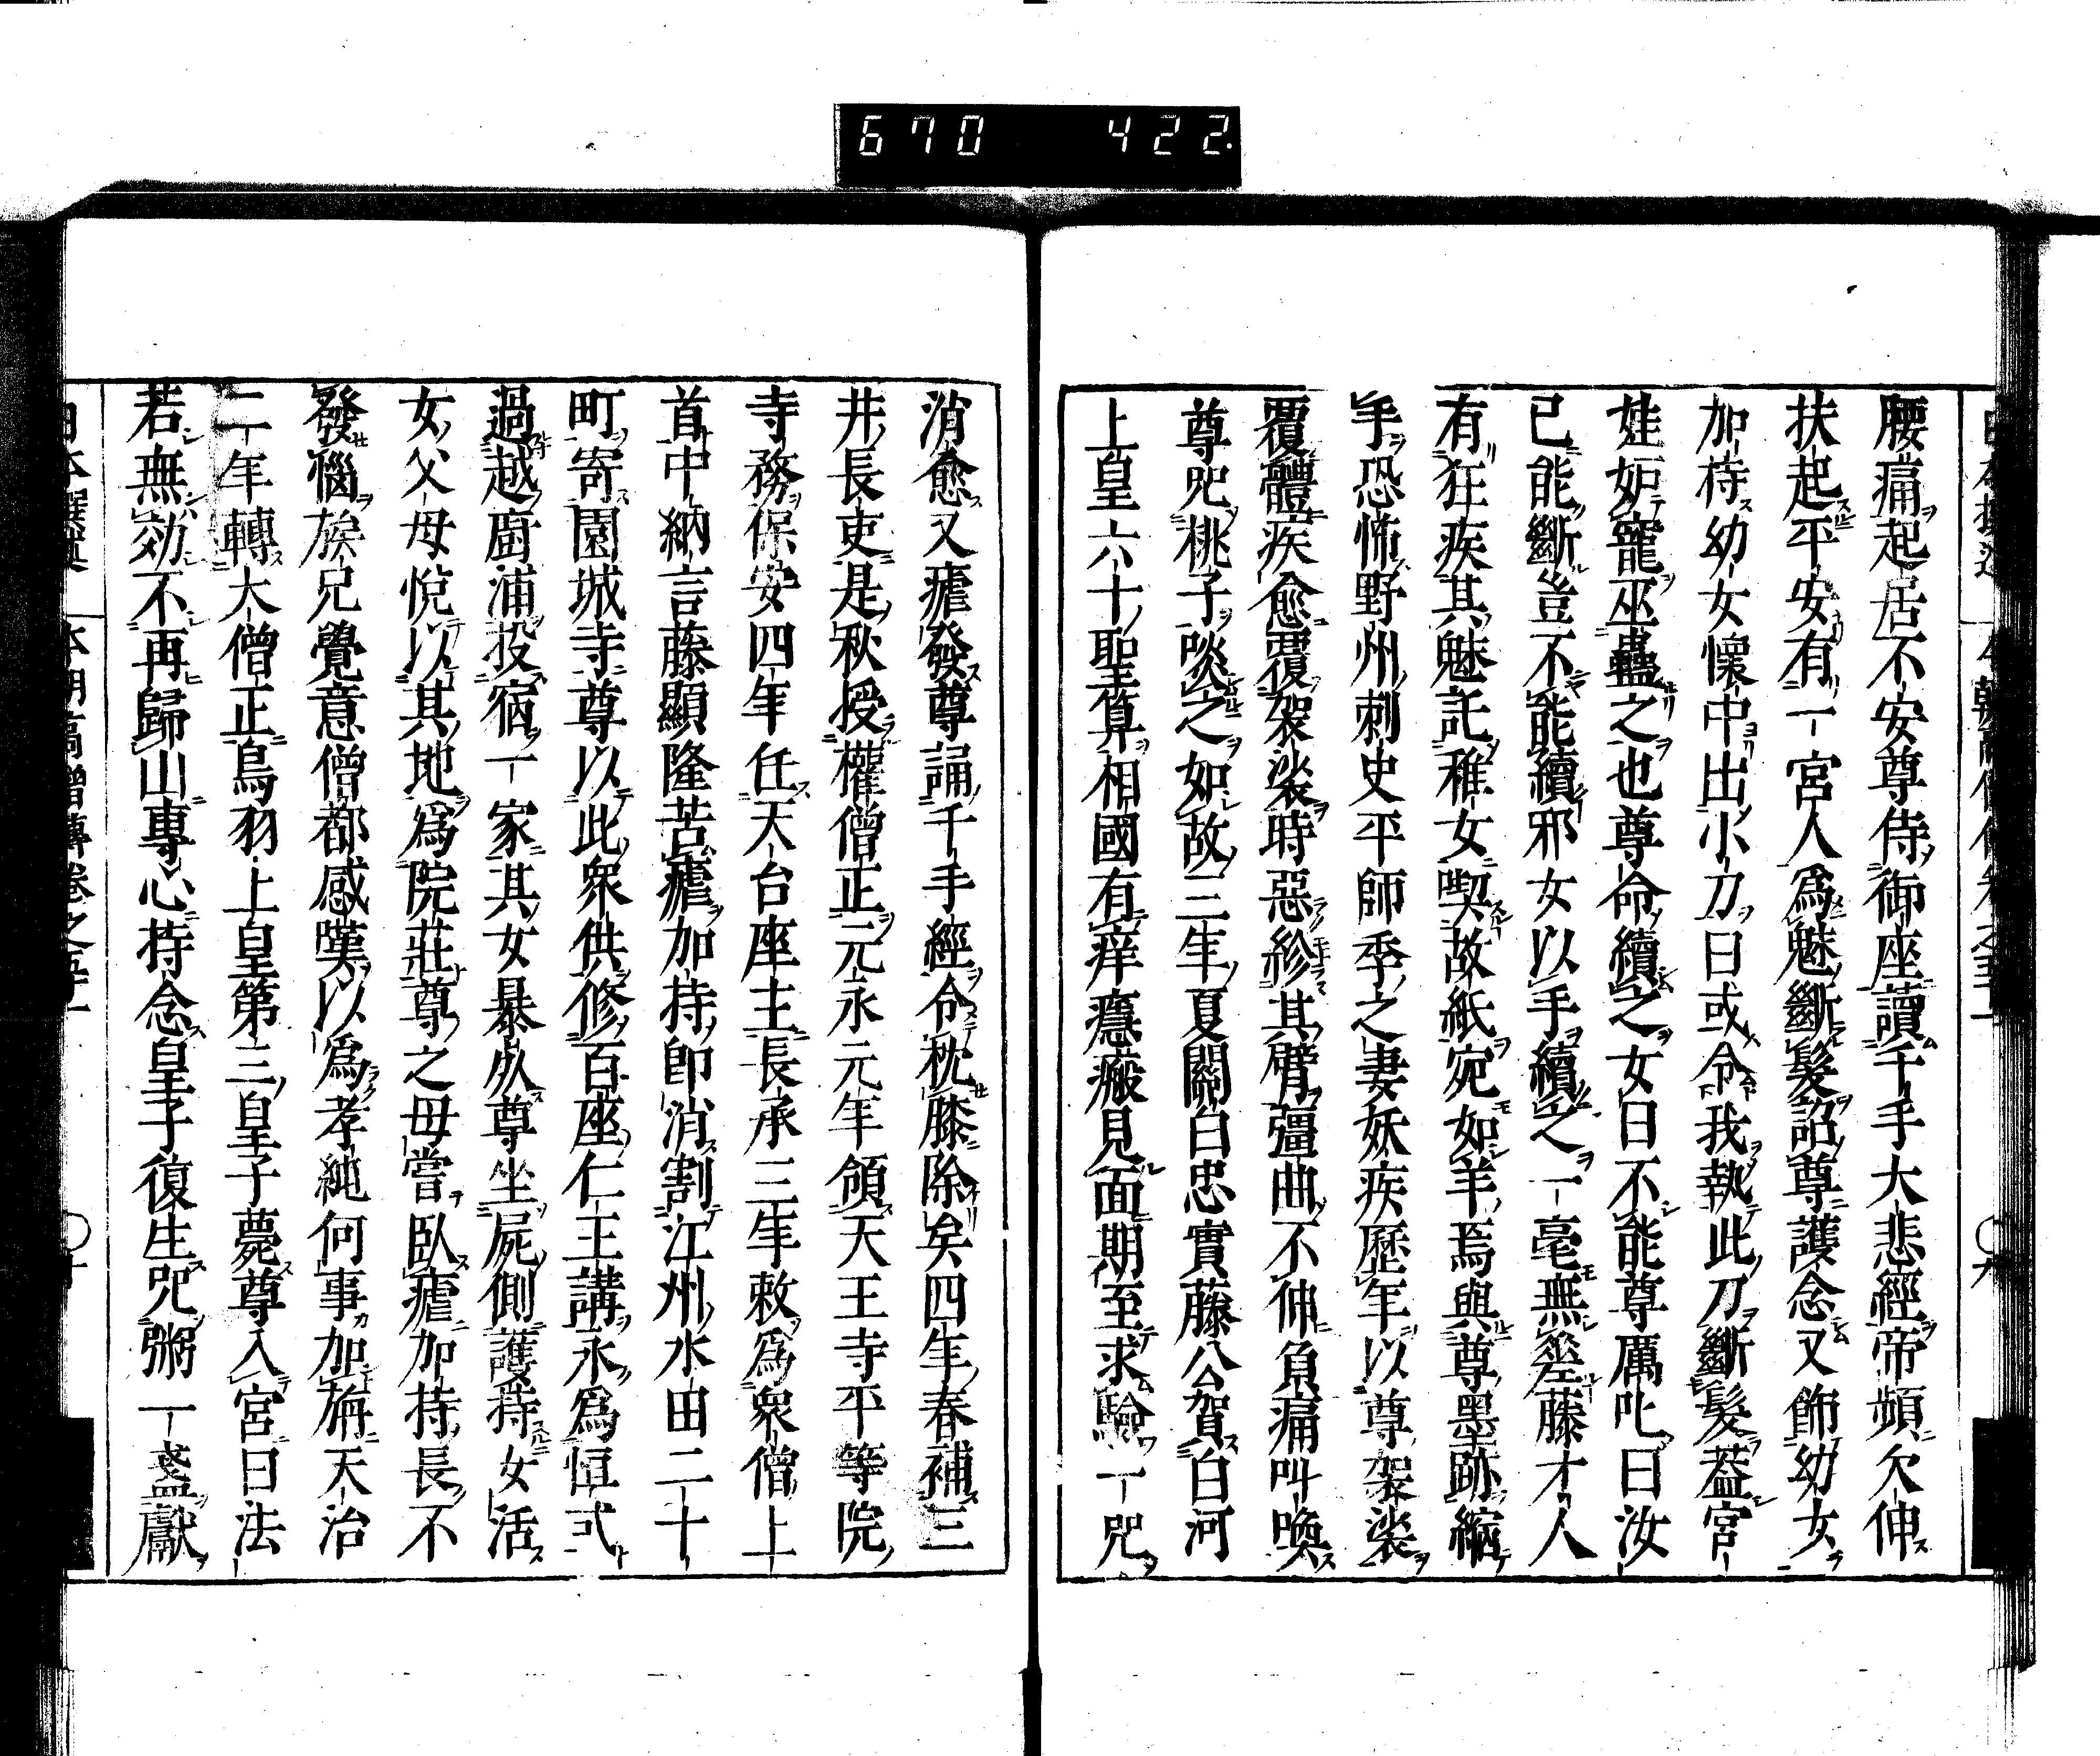 670 422
腰痛起居不安尊侍御座讀千手大悲經帝頻欠伸
扶起平安有一宮人爲魅斷髮詔尊護念又飾幼女
加持幼女懷中出小刀曰或令我執此刀斷髮葢宮
娃妬寵巫蠱之也尊命續之女曰不能尊厲叱曰汝
已能斷豈不能續邪女以手續之一毫無差藤才人
有狂疾其魅託稚女喫故紙宛如羊焉與尊墨跡縮
手恐怖野州刺史平師季之妻妖疾歷年以尊袈裟
覆體疾愈覆袈裟時惡紾其臂彊曲不伸負痛叫喚
尊咒桃子啖之如故三年夏關白忠實藤公賀白河
上皇六十聖算相國有痒癮瘢見面期至求驗一咒
消愈又瘧發尊誦千手經令枕膝除矣四年春補三
井長吏是秋授權僧正元永元年領天王寺平等院
寺務保安四年任天台座主長承三年敕爲衆僧上
首中納言藤顯隆苦瘧加持即消割江州水田二十
町寄園城寺尊以此衆供修百座仁王講永爲恒式
過越厨浦投宿一家其女暴死尊坐屍側護持女活
女父母悅以其地爲院莊尊之母嘗臥瘧加持長不
發惱族兄覺意僧都感嘆以爲孝純何事加旃天治
二年轉大僧正鳥羽上皇第三皇子薨尊入宮曰法
若無効不再歸山專心持念皇子復生咒粥一盞獻
本朝高僧傳卷之五十 〇十